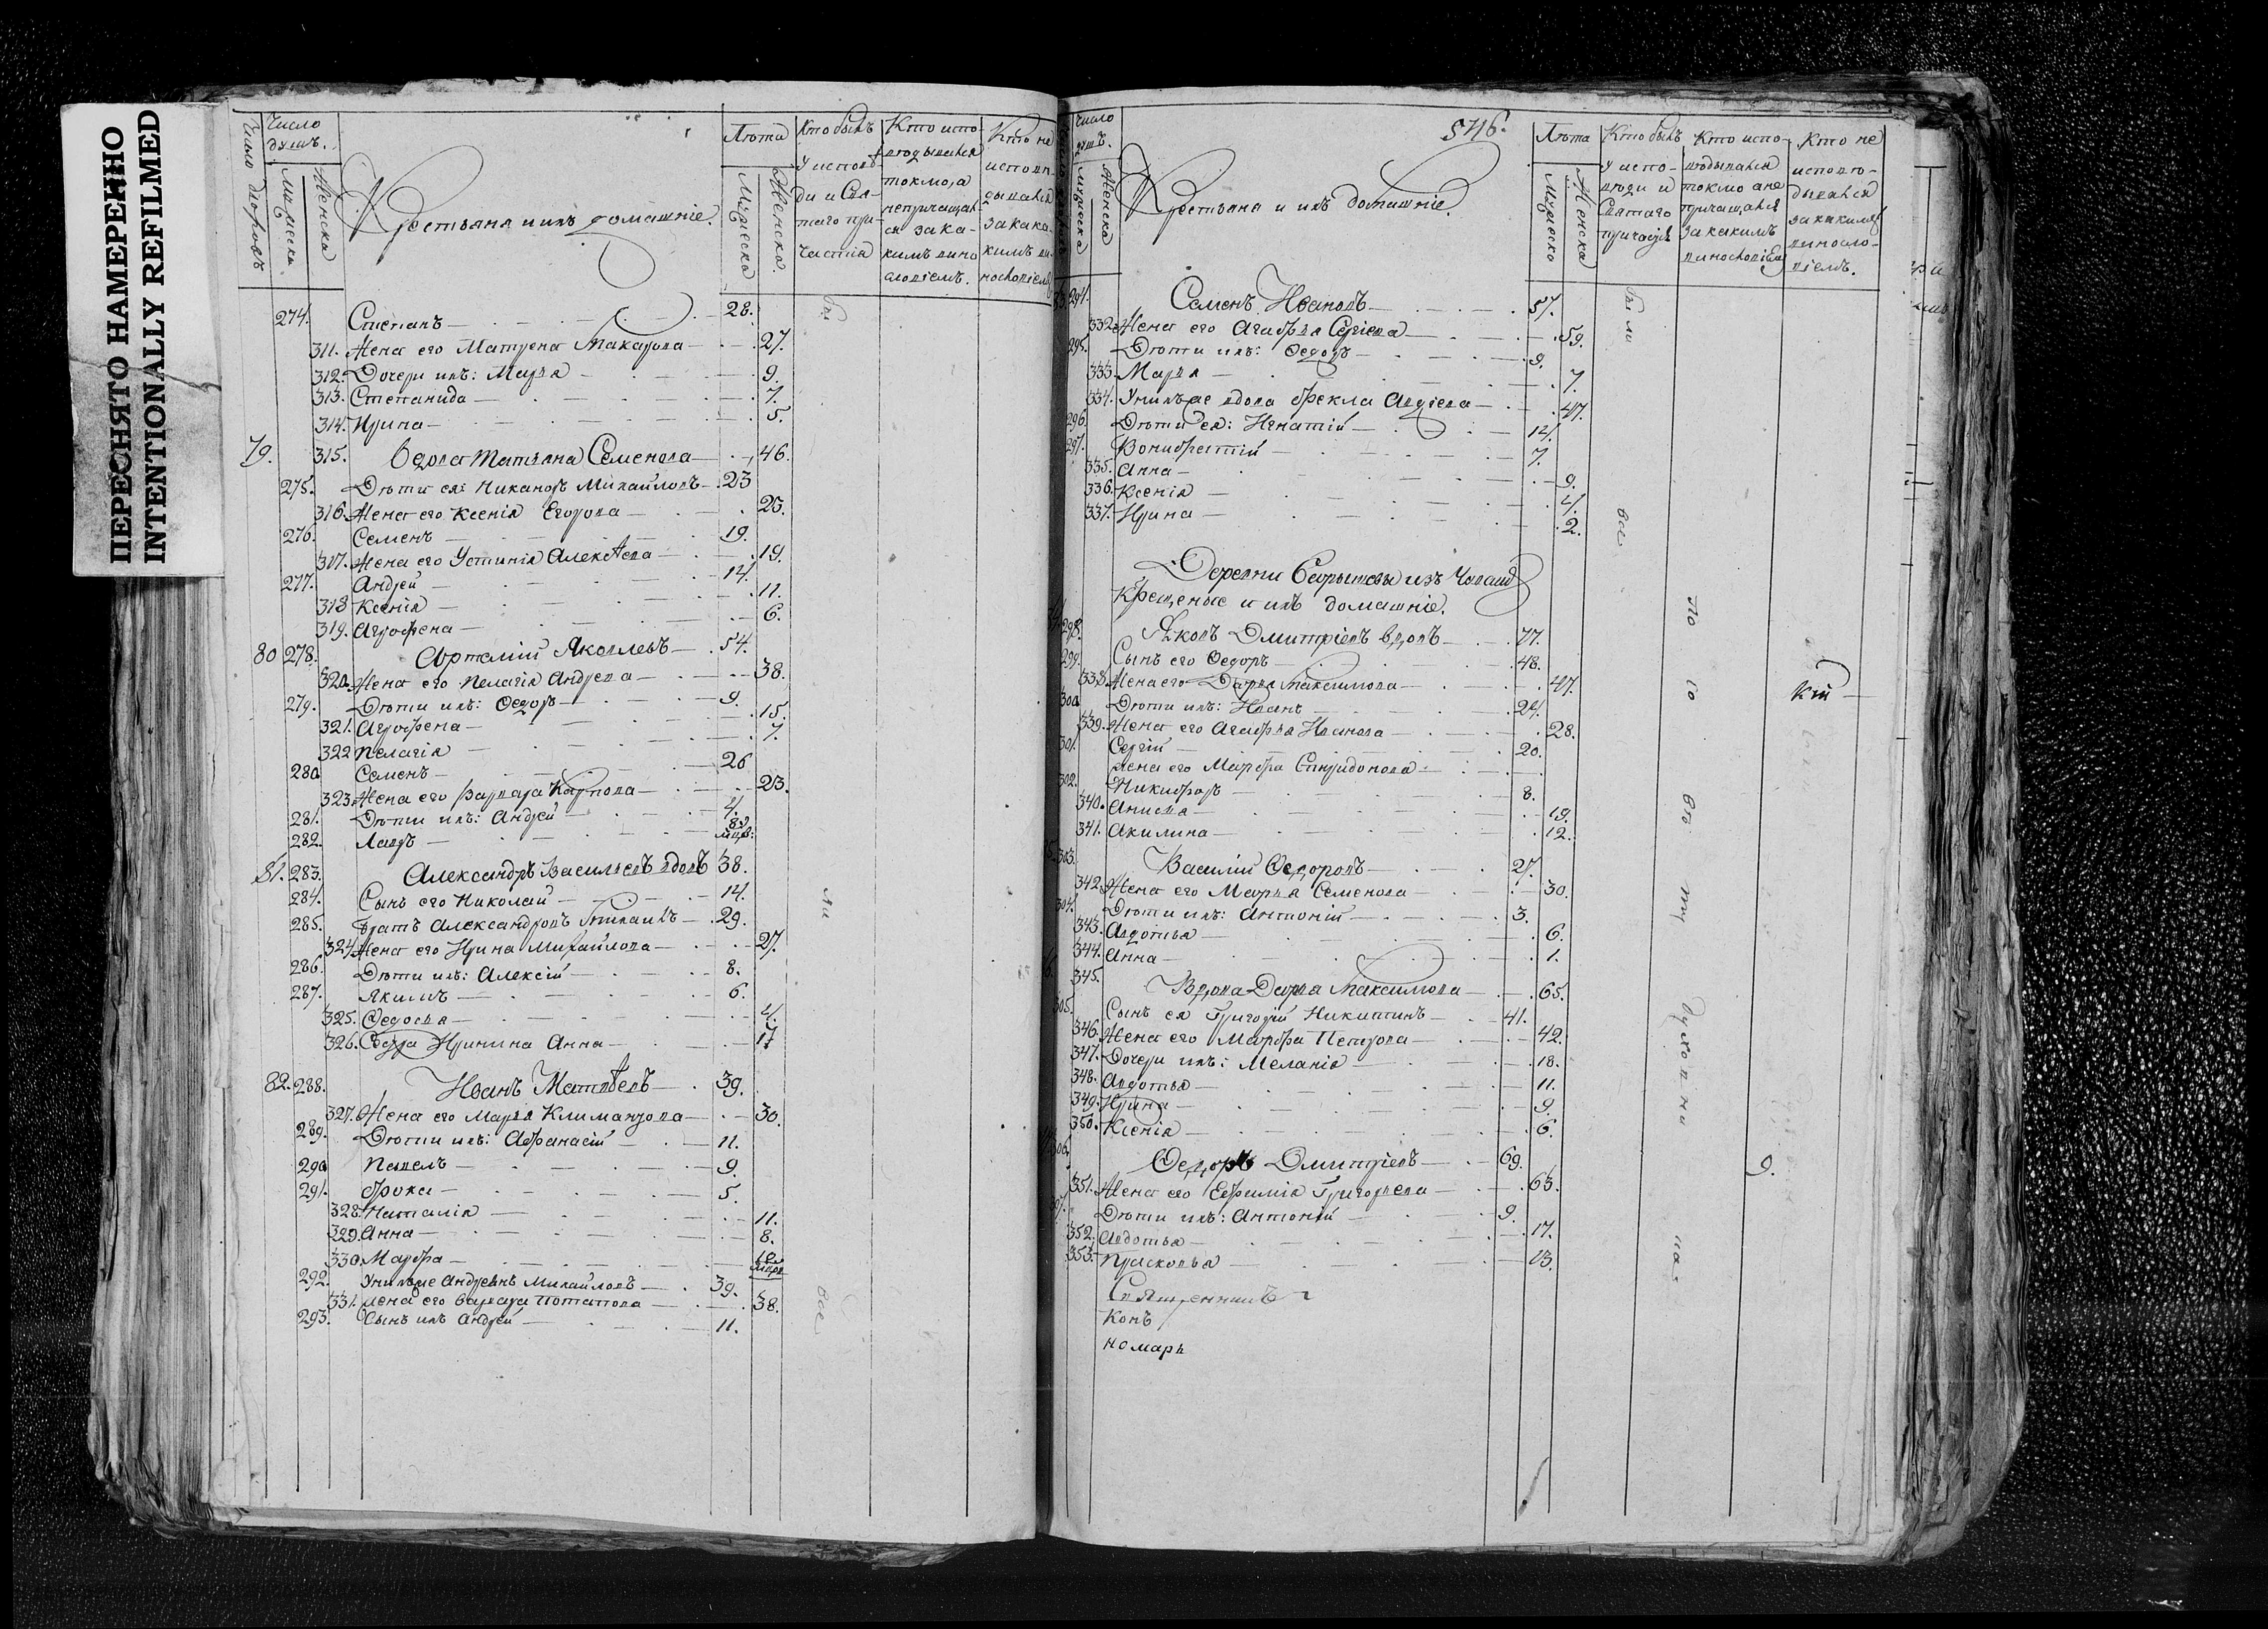 ПЕРЕСНЯТО НАМЕРЕННО
INTENTIONALLY REFILMED
Число дворовъ
Число душъ.
Мужеска.
Женска
Крестьяна и ихъ домашніе.
Лѣта
Мужеска
Женска.
Кто былъ у исповѣди и Святаго причастія
Кто исповѣдывался токмо, а непричащался за какимъ винословіемъ.
Кто не исповѣдывался за какимъ винословіемъ
274. Степанъ 28.
311. Жена его Матрена Макарова 27.
312. Дочери ихъ: Марья 9.
313. Степанида 7.
314. Ирина 5.
79. 315. Вдова Татьяна Семенова 46.
275. Дѣти ея: Никаноръ Михайловъ 23
316. Жена его Ксенія Егорова 23.
276. Семенъ 19.
317. Жена его Устинія Алексѣева 19.
277. Андрей 14.
318 Ксенія 11.
319. Агрофена 6.
80 278. Артемій Яковлевъ 54.
320. Жена его Пелагія Андрева 38.
279. Дѣти ихъ: Ѳедоръ 9.
321. Агрофена 15.
322 Пелагія 7.
280 Семенъ 26
323. Жена его Варвара Карпова 23.
281. Дѣти ихъ: Андрей 4.
282. Лавръ
81. 283. Александръ Васильевъ вдовъ 38.
284. Сынъ его Николай 14.
285. Братъ Александровъ Михаилъ 29.
324. Жена его Ирина Михайлова 27.
286. Дѣти ихъ: Алексій 8.
287. Якимъ 6.
325. Ѳедосья 4.
326. Сестра Иринина Анна 17
82. 288. Иванъ Матвѣевъ 39.
327. Жена его Марья 30.
289. Дѣти ихъ: Афанасій 11.
290 Павелъ 9.
291. Фрока 5.
328. Наталія 11.
329. Анна 8.
330. Марфа
292. Унихъже Андреянъ Михайловъ 39.
331. Жена его Варвара Потапова 38.
293. Сынъ ихъ Андрей 11.
бы
ли
все
546.
Число душъ.
Мужеска
Женска
Крестьяна и ихъ домашніе.
Лѣта
Мужеско
Женска
Кто былъ у исповѣди и Святаго причастія
Кто исповѣдывался токмо а не причащался за какимъ винословіемъ
Кто не исповѣдывался за какимъ винословіемъ.
294. Семенъ Ивановъ 57.
332. Жена его Агафья Сергіева 59.
295. Дѣти ихъ: Ѳедоръ 9.
333. Марья 7.
334. Унихъже вдова Фекла Авдіева 47.
296. Дѣти ея: Игнатій 14.
297. Вонифатій 7.
335. Анна 9.
336. Ксенія 4.
337. Ирина 2.
Деревни из
Крещеные и ихъ домашніе.
298. Яковъ Дмитріевъ вдовъ 77.
299. Сынъ его Ѳедоръ 48.
338. Жена его Дарья Максимова 47.
300 Дѣти ихъ: Иванъ 24.
339. Жена его Агафья Иванова 28.
301. Сергій 20.
Жена его Марфа Спиридонова
302. Никифоръ 8.
340. Анисья 19.
341. Акилина 12.
303. Василій Ѳедоровъ 27.
342. Жена его Марья Семенова 30.
304. Дѣти ихъ: Антоній 3.
343. Авдотья 6.
344. Анна 1.
345. Вдова Дарья Максимова 65.
305. Сынъ ея Григорій Никитинъ 41.
346. Жена его Марфа Петрова 42.
347. Дочери ихъ: Меланія 18.
348. Авдотья 11.
349. Ирина 9.
350. Ксенія 6.
306. Ѳедоръ Дмитріевъ 69.
351. Жена его Евфимія Григорьева 63.
307. Дѣти ихъ: Антоній 9.
352. Авдотья 17.
353. Прасковья 13.
Священникъ
Конъ
номарь
были
все
по
со
во
ту
духовни
кій
9.